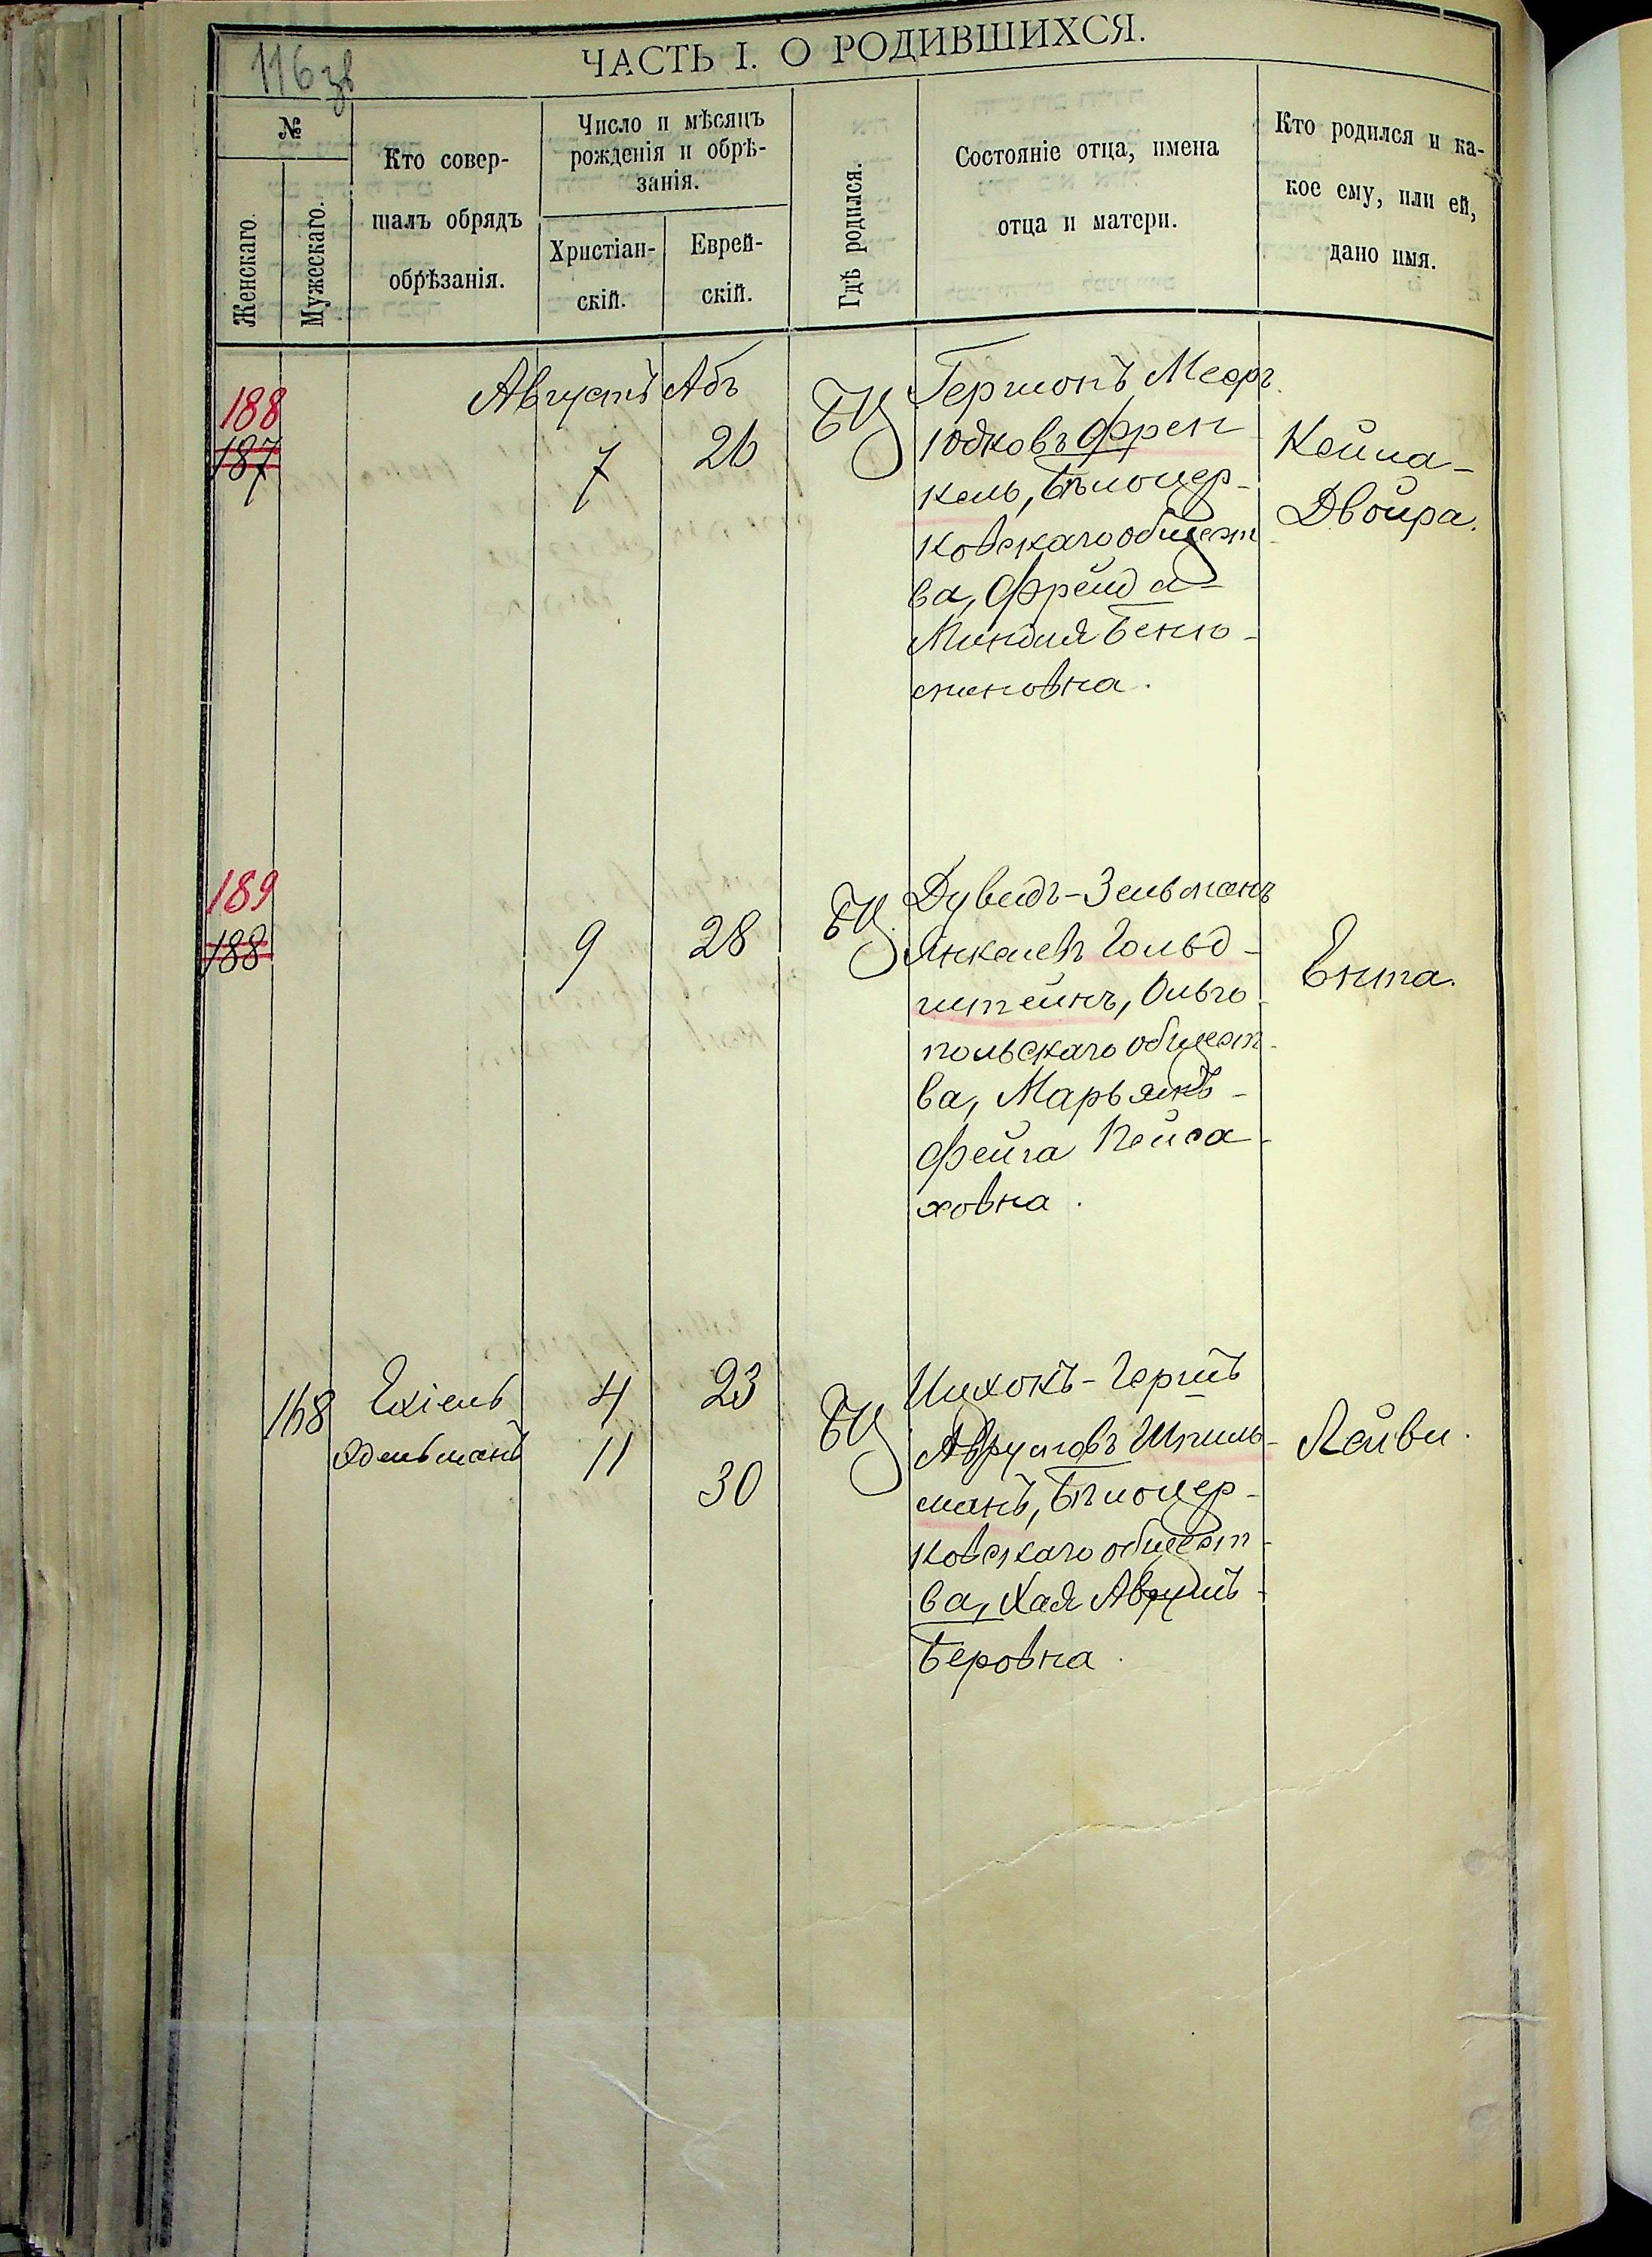 116 зв
ЧАСТЬ I. О РОДИВШИХСЯ.
№
Женскаго.
Мужескаго.
Кто совер-
шалъ обрядъ
обрѣзанія.
Число и мѣсяцъ
рожденія и обрѣ-
занія.
Христіан-
скій.
Еврей-
скій.
Гдѣ родился.
Состояніе отца, имена
отца и матери.
Кто родился и ка-
кое ему, или ей,
дано имя.
188
187
Августъ Абъ
7
26
БЦ
Гершонъ Меер
Юдковъ Френ
кель, Бѣлоцер-
ковскаго общест
ва, Фрейда-
Миндля Беню-
миновна.
Кейла-
Двойра.
189
188
9
28
БЦ
Дувидъ-Зельманъ
Янкелевъ Гольд-
штейнъ, Ольго
польскаго общест-
ва, Марьямъ-
Фейга Пейса-
ховна.
Ента.
168
Ехіель
Эдельманъ
4
11
23
30
БЦ
Ицхокъ-Гершъ
Аврумовъ Шпиль-
манъ, Бѣлоцер-
ковскаго общест-
ва, Хая Аврумъ-
Беровна.
Лейви.